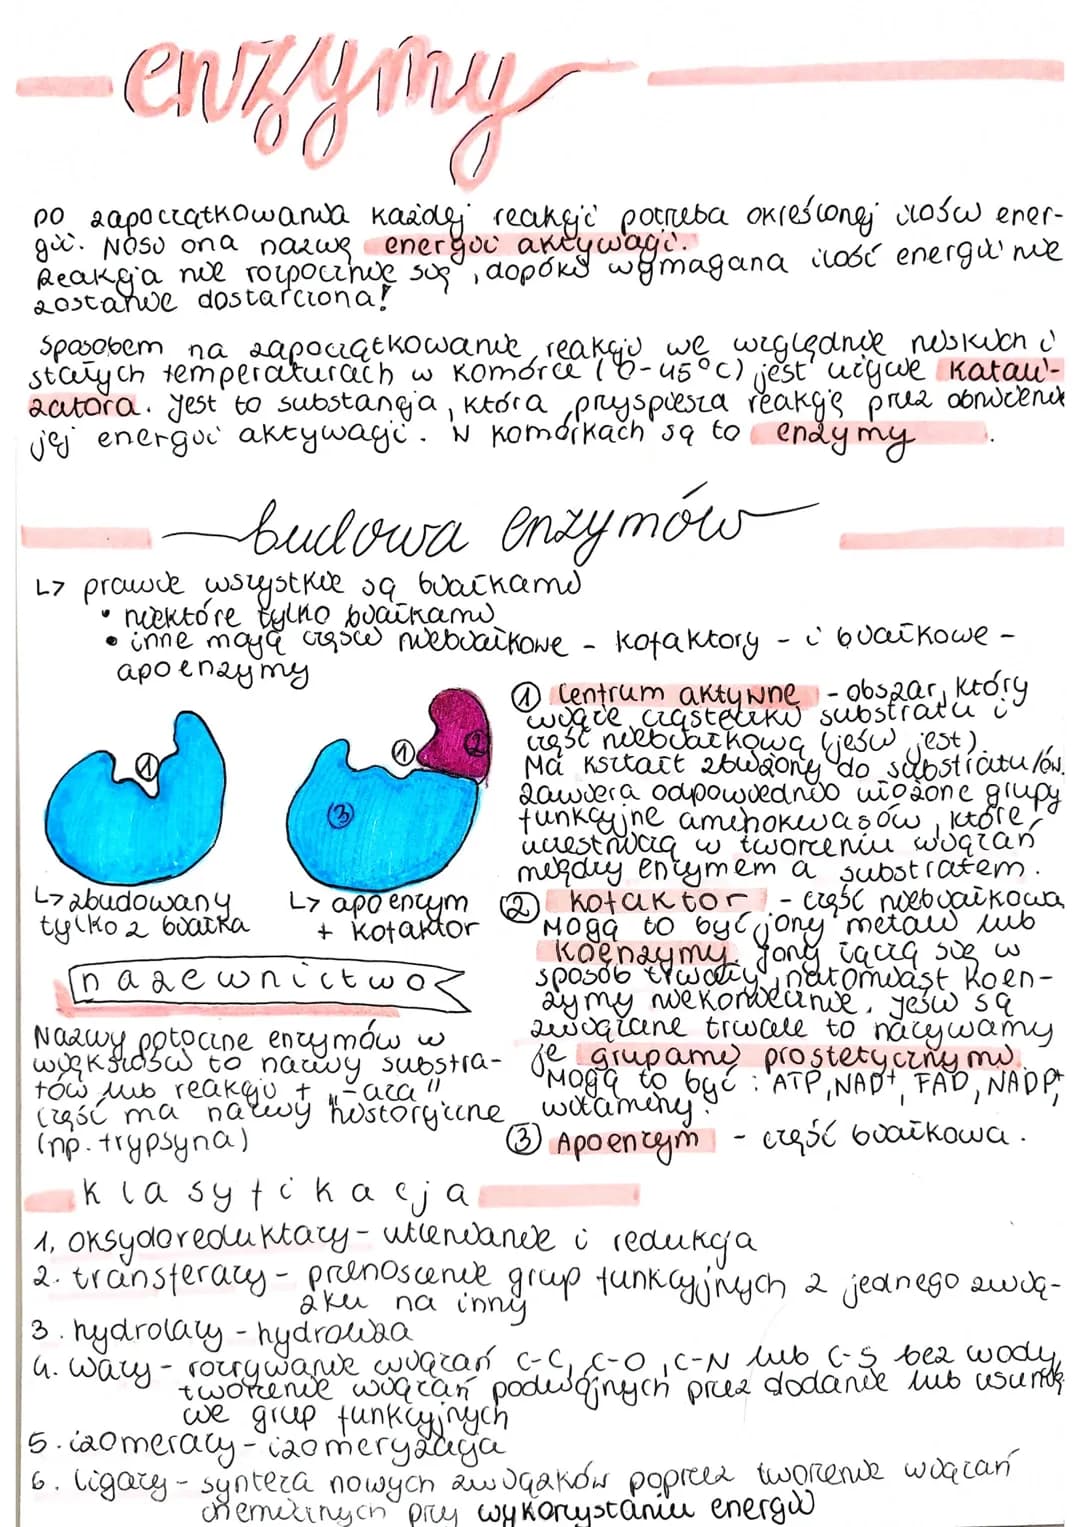 enzymy
Do zapoczątkowania każdej reakcji potrzeba określonej ilości ener-
gii. Nosi ona nazwę energii aktywacji.
Reakcja nie rozpocznie się, dopóki wymagana ilość energii nie
zostanie dostarczona!
Sposobem na zapoczątkowanie reakcji we względnie niskich i
stałych temperaturach w komórce (0-45°C) jest użycie katali-
zatora. Jest to substancja, która przyspiesza reakcję przez obniżenie
jej energii aktywacji. W komórkach są to enzymy.
budowa enzymów
↳ prawie wszystkie są białkami
• niektóre tylko białkami
• inne mają części niebiałkowe - kofaktory - i białkowe -
apoenzymy
1
1
2
3
↳ zbudowany
tylko z białka
↳ apoenzym
+ kofaktor
① Centrum aktywne - obszar, który
wiąże cząsteczki substratu i
część niebiałkową (jeśli jest).
Ma kształt zbliżony do substratu/ów.
Zawiera odpowiednio ułożone grupy
funkcyjne aminokwasów, które
uczestniczą w tworzeniu wiązań
między enzymem a substratem.
② kofaktor - część niebiałkowa
Mogą to być jony metali lub
koenzymy. Jony łączą się w
sposób trwały, natomiast koen-
zymy niekoniecznie. Jeśli są
związane trwale to nazywamy
je grupami prostetycznymi.
Mogą to być: ATP, NAD⁺, FAD, NADP⁺,
witaminy.
③ Apoenzym - część białkowa.
nazewnictwo
Nazwy potoczne enzymów w
większości to nazwy substra-
tów lub reakcji + "-aza"
Część ma nazwy historyczne
(np. trypsyna)
klasyfikacja
1. oksydoreduktazy - utlenianie i redukcja
2. transferazy - przenoszenie grup funkcyjnych z jednego zwią-
zku na inny
3. hydrolazy - hydroliza
4. liazy - rozrywanie wiązań C-C, C-O, C-N lub C-S bez wody,
tworzenie wiązań podwójnych przez dodanie lub usunię
cie grup funkcyjnych
5. izomerazy - izomeryzacja
6. ligazy - synteza nowych związków poprzez tworzenie wiązań
chemicznych przy wykorzystaniu energii